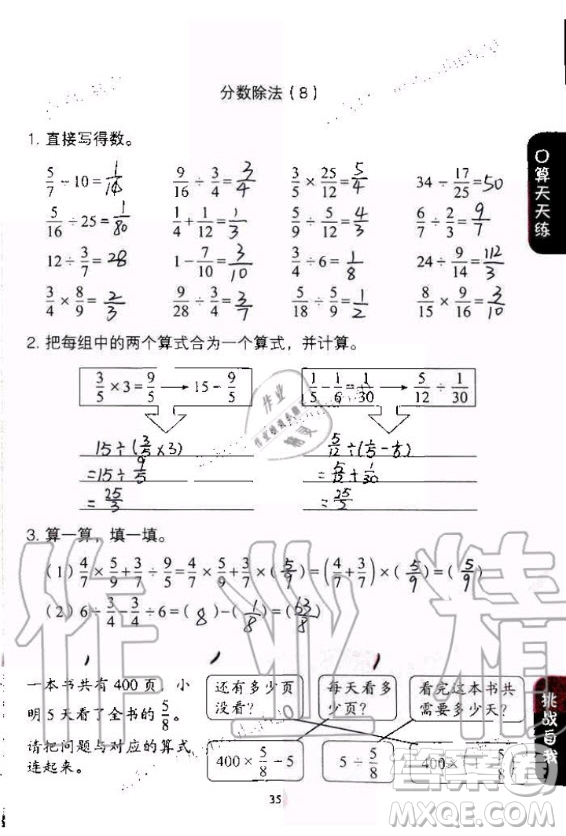 分数除法（8）
1. 直接写得数。
5/7 ÷ 10 = 1/14  9/16 ÷ 3/4 = 3/4  3/5 × 25/12 = 5/4  34 ÷ 17/25 = 50
5/16 ÷ 25 = 1/80  1/4 + 1/12 = 1/3  5/9 ÷ 5/12 = 4/3  6/7 ÷ 2/3 = 9/7
12 ÷ 3/7 = 28  1 − 7/10 = 3/10  3/4 ÷ 6 = 1/8  24 ÷ 9/14 = 112/3
3/4 × 8/9 = 2/3  9/28 ÷ 3/4 = 3/7  5/18 ÷ 5/9 = 1/2  8/15 × 9/16 = 3/10
2. 把每组中的两个算式合为一个算式，并计算。
3/5 × 3 = 9/5 → 15 − 9/5  1/5 − 1/6 = 1/30 → 5/12 ÷ 1/30
15 ÷ (3/5 × 3)  5/12 ÷ (1/5 − 1/6)
= 15 ÷ 9/5  = 5/12 ÷ 1/30
= 25/3  = 25/2
3. 算一算，填一填。
（1）4/7 × 5/9 + 3/7 ÷ 9/5 = 4/7 × 5/9 + 3/7 × ( 5/9 ) = (4/7 + 3/7) × ( 5/9 ) = ( 5/9 )
（2）6 ÷ 3/4 − 3/4 ÷ 6 = ( 8 ) − ( 1/8 ) = ( 63/8 )
一本书共有 400 页，小
明 5 天看了全书的 5/8。
请把问题与对应的算式
连起来。
还有多少页没看？ 每天看多少页？ 看完这本书共需要多少天？
400 × 5/8 ÷ 5  5 ÷ 5/8
35
算天天练
挑战自我
作业精
作业
精灵
答案圈
MXQE.COM